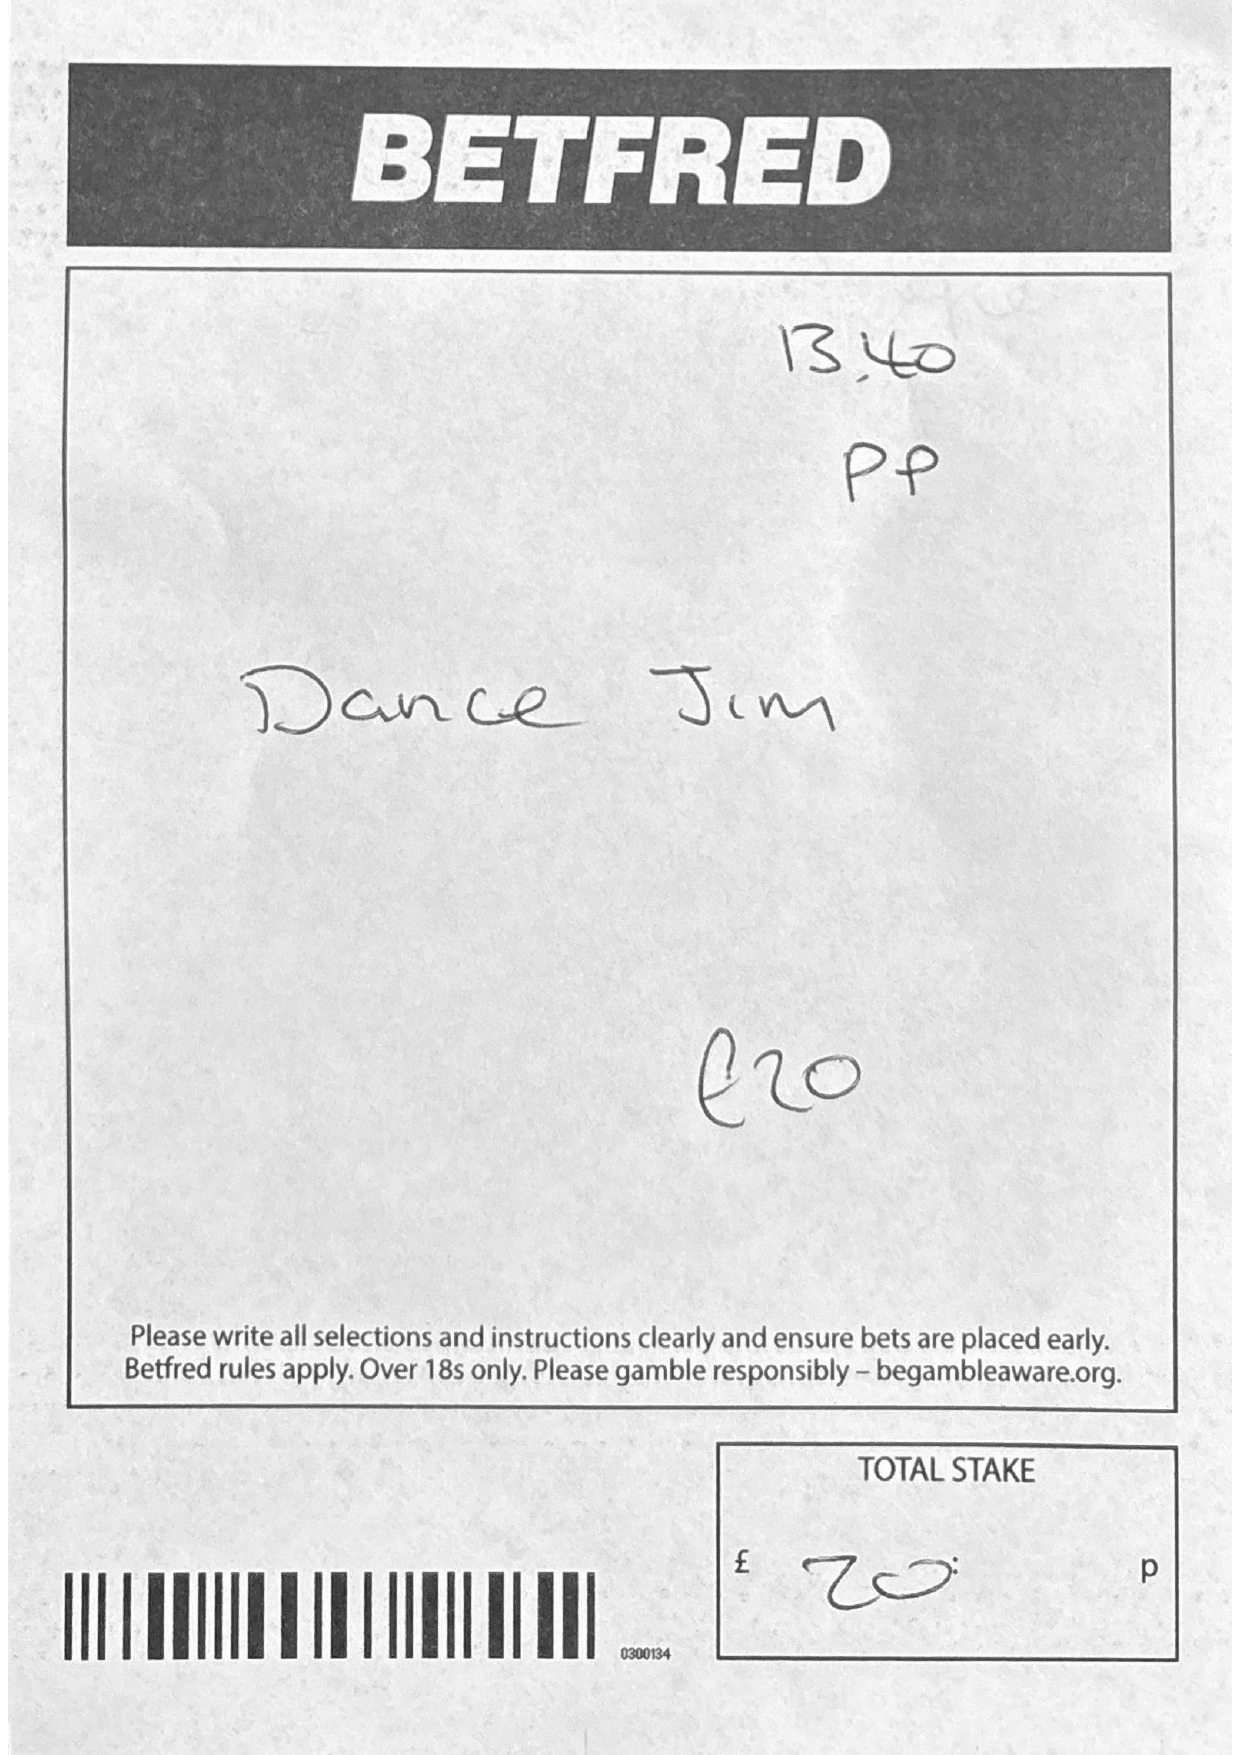 BETFRED
13.40
PP
Dance Jim
£20
Please write all selections and instructions clearly and ensure bets are placed early.
Betfred rules apply. Over 18s only. Please gamble responsibly – begambleaware.org.
TOTAL STAKE
£ 20 p
0300134